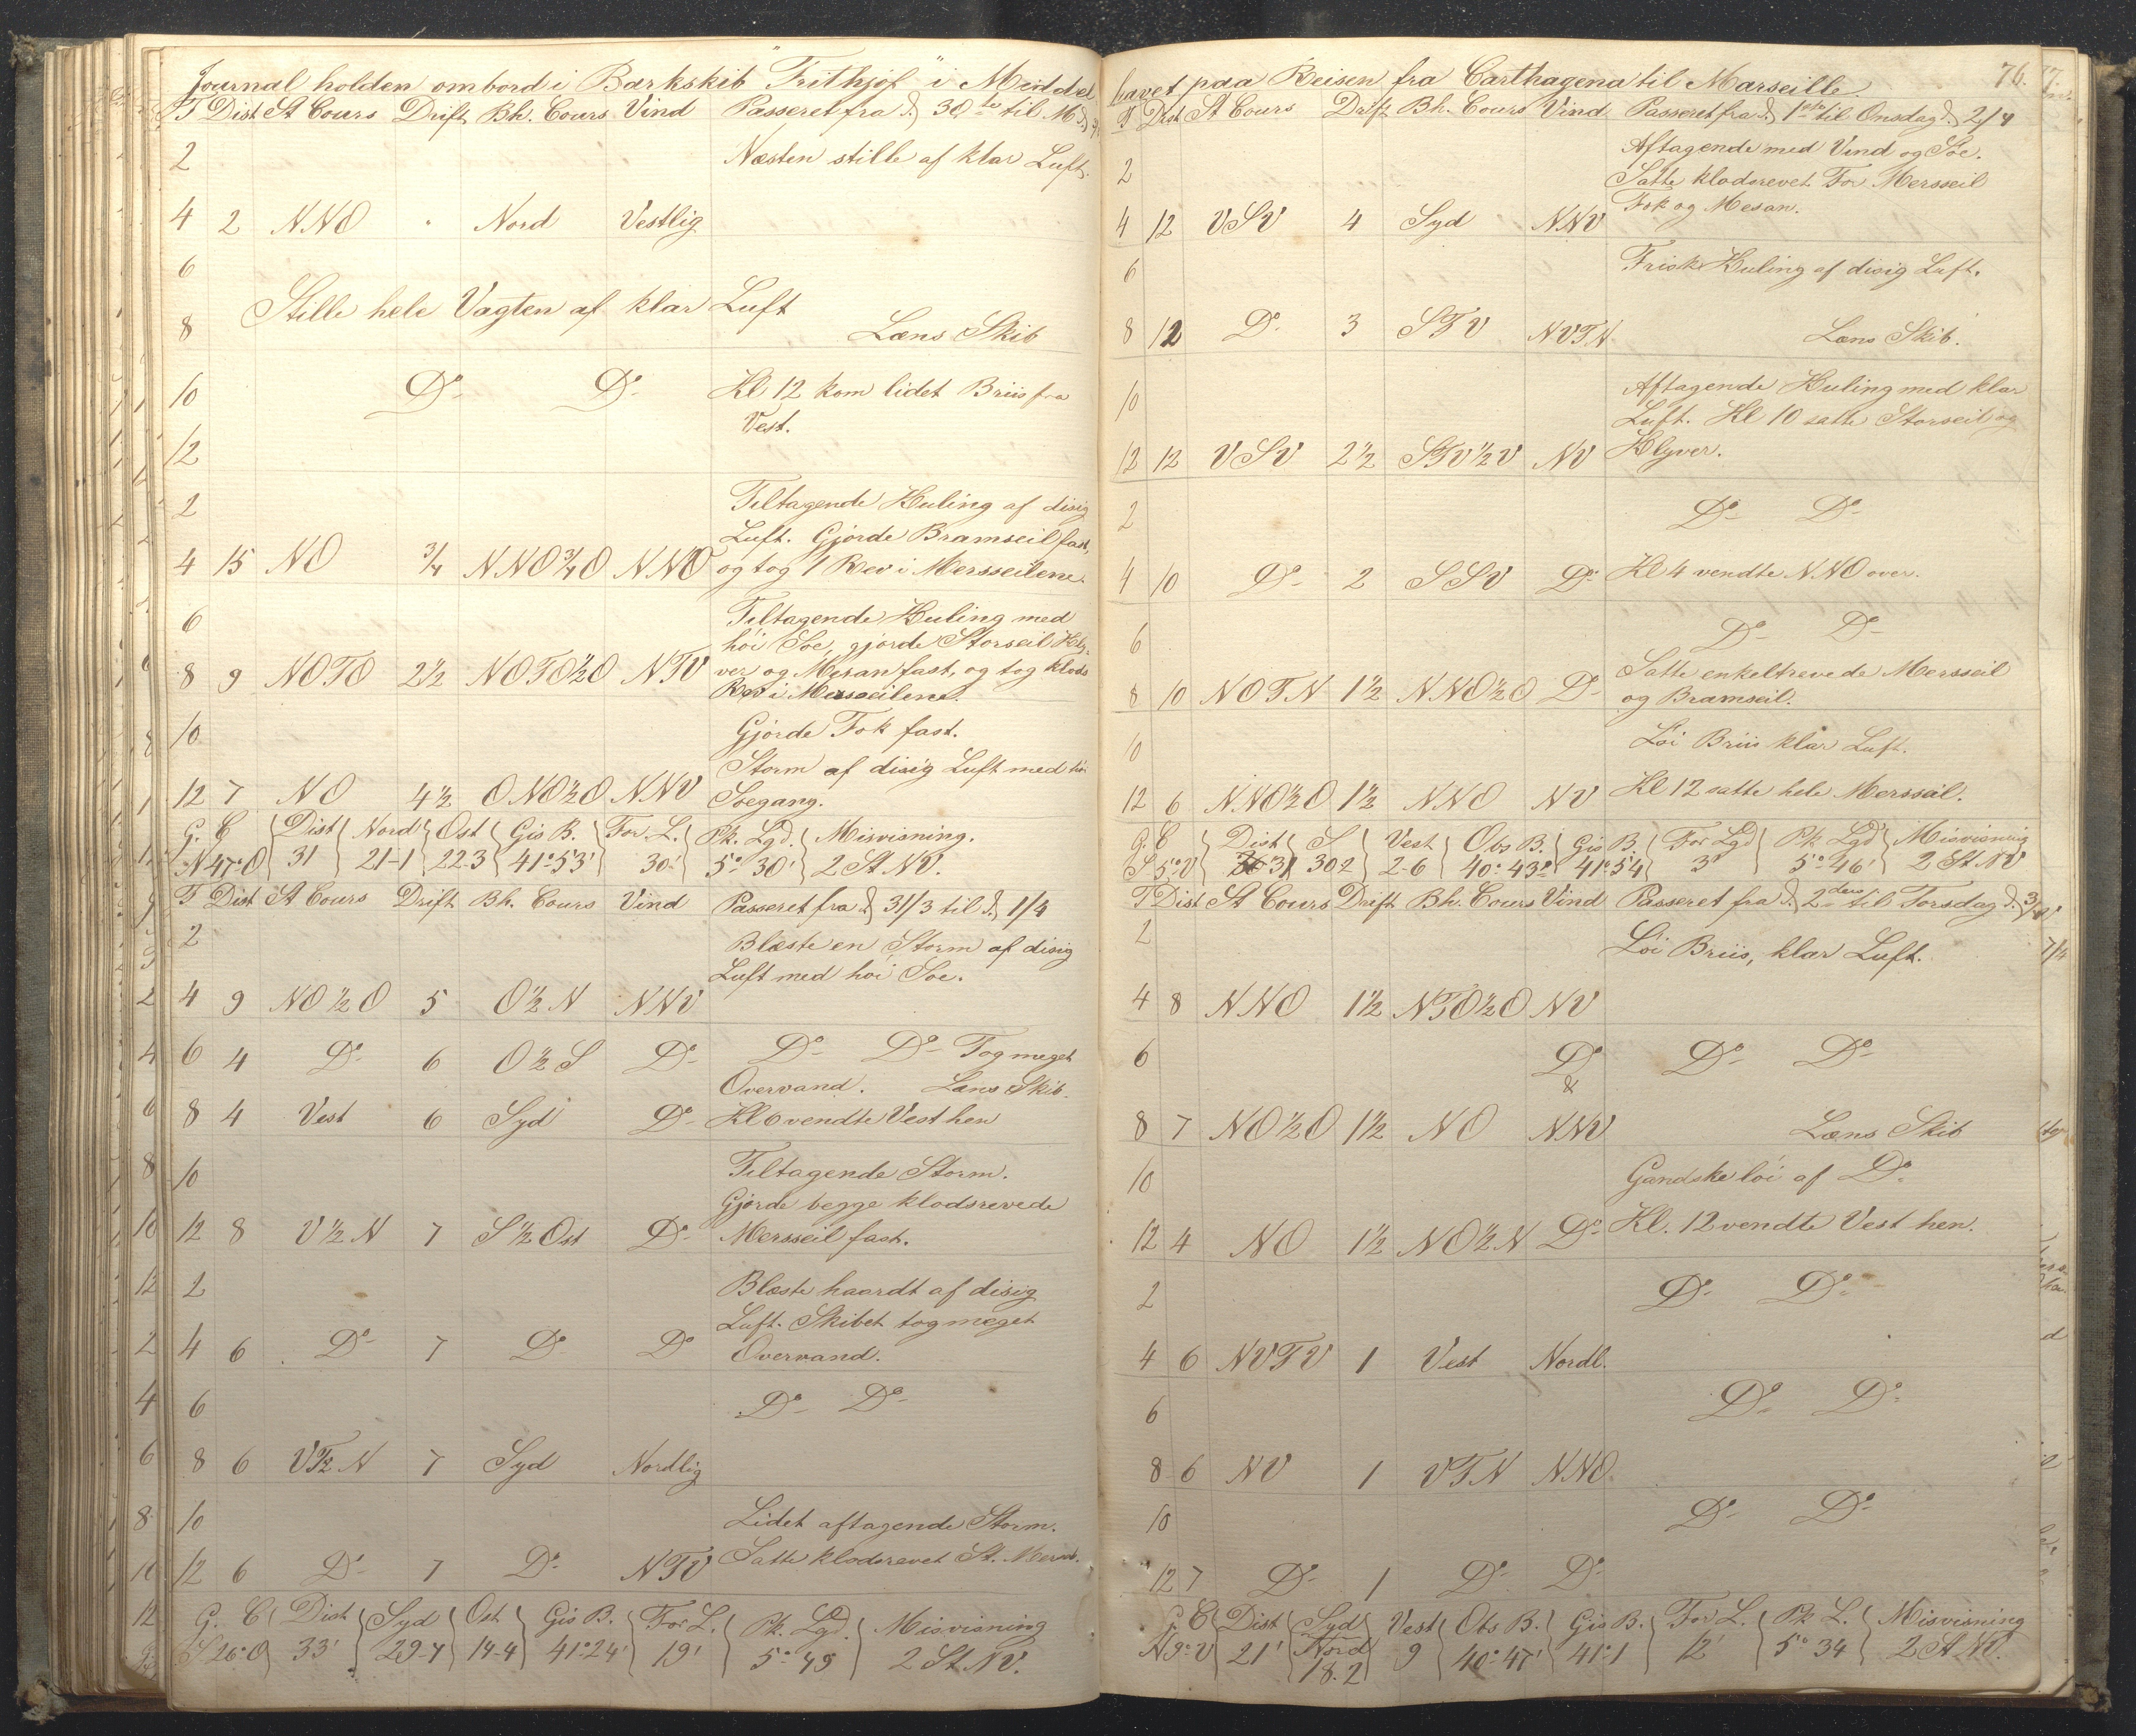 Journal holden ombord i Barkskib "Frithjof" i Middel
T Dist St Cours Drift Bh. Cours Vind Passeret fra d. 30te til M d.
2 Næsten stille af klar Luft.
4 2 NNO " Nord Vestlig
6
Stille hele Vagten af klar Luft
8 Læns Skib
10 Do Do Kl 12 kom lidet Briis fra
Vest.
12
2 Tiltagende Kuling af disig
Luft. Gjorde Bramseil fast,
4 15 NO 3/4 NNO3/4O NNO og tog 1 Rev i Mersseilene.
6 Tiltagende Kuling med
høi Søe, gjorde Storseil Kly-
8 9 NOTO 2½ NOTO½O NTV ver og Mesan fast, og tog klods
Rev i Mersseilene.
10 Gjorde Fok fast.
Storm af disig Luft med høi
12 7 NO 4½ ONO½O NNV Søegang.
G. C Dist Nord Ost Gis B. For. L. Pk. Lgd. Misvisning.
N47°O 31 21-1 223 41°53' 30' 5° 30' 2 St. NV.
T Dist St Cours Drift Bh. Cours Vind Passeret fra d. 31/3 til d. 1/4
2 Blæste en Storm af disig
Luft med høi Søe.
4 9 NO½O 5 O½N NNV
6 4 Do 6 O½S Do Do Do Tog meget
Overvand. Læns Skib.
8 4 Vest 6 Syd Do Kl 6 vendte Vest hen
10 Tiltagende Storm.
Gjorde begge klodsrevede
12 8 V½N 7 S½Ost Do Mersseil fast.
2 Blæste haardt af disig
Luft. Skibet tog meget
4 6 Do 7 Do Do Overvand.
6 Do Do
8 6 VT½N 7 Syd Nordlig
10 Lidet aftagende Storm.
12 6 Do 7 Do NTV Satte klodsrevet St. Merss.
G. C Dist Syd Ost Gis B. For L. Pk. Lgd. Misvisning
S26°O 33' 29-7 14-4 41°24' 19' 5° 49 2 St. NV.
76.
havet paa Reisen fra Carthagena til Marseille.
T Dist St Cours Drift Bh. Cours Vind Passeret fra d. 1ste til Onsdag d. 2/4
2 Aftagende med Vind og Søe.
Satte klodsrevet For Mersseil
4 12 VSV 4 Syd NNV Fok og Mesan.
6 Frisk Kuling af disig Luft.
8 12 Do 3 STV NVTN Læns Skib.
10 Aftagende Kuling med klar
Luft. Kl 10 satte Storseil og
12 12 VSV 2½ STV½V NV Klyver.
2 Do Do
4 10 Do 2 SSV Do Kl 4 vendte NNO over.
6 Do Do
Satte enkeltrevede Mersseil
8 10 NOTN 1½ NNO½O Do og Bramseil.
10 Løi Briis klar Luft.
12 6 NNO½O 1½ NNO NV Kl 12 satte hele Mersseil.
G. C Dist S Vest Obs B. Gis B. For Lgd Pk Lgd Misvisning
S 5°V 31 302 2-6 40°43' 41°54 3' 5°46' 2 St. NV
T Dist St Cours Drift Bh. Cours Vind Passeret fra d. 2den til Torsdag d. 3/4
2 Løi Briis, klar Luft.
4 8 NNO 1½ NTO½O NV
6 Do Do Do
&
8 7 NO½O 1½ NO NNV Læns Skib
10 Gandske løi af Do
12 4 NO 1½ NO½N Do Kl. 12 vendte Vest hen.
2 Do Do
4 6 NVTV 1 Vest Nordl.
6 Do Do
8 6 NV 1 VTN NNO
10 Do Do
12 7 Do 1 Do Do
G. C Dist Syd Vest Obs B. Gis B. For L. Pk L. Misvisning
N9°V 21' Nord 9 40°47' 41°1 12' 5° 34 2 St NV.
18.2